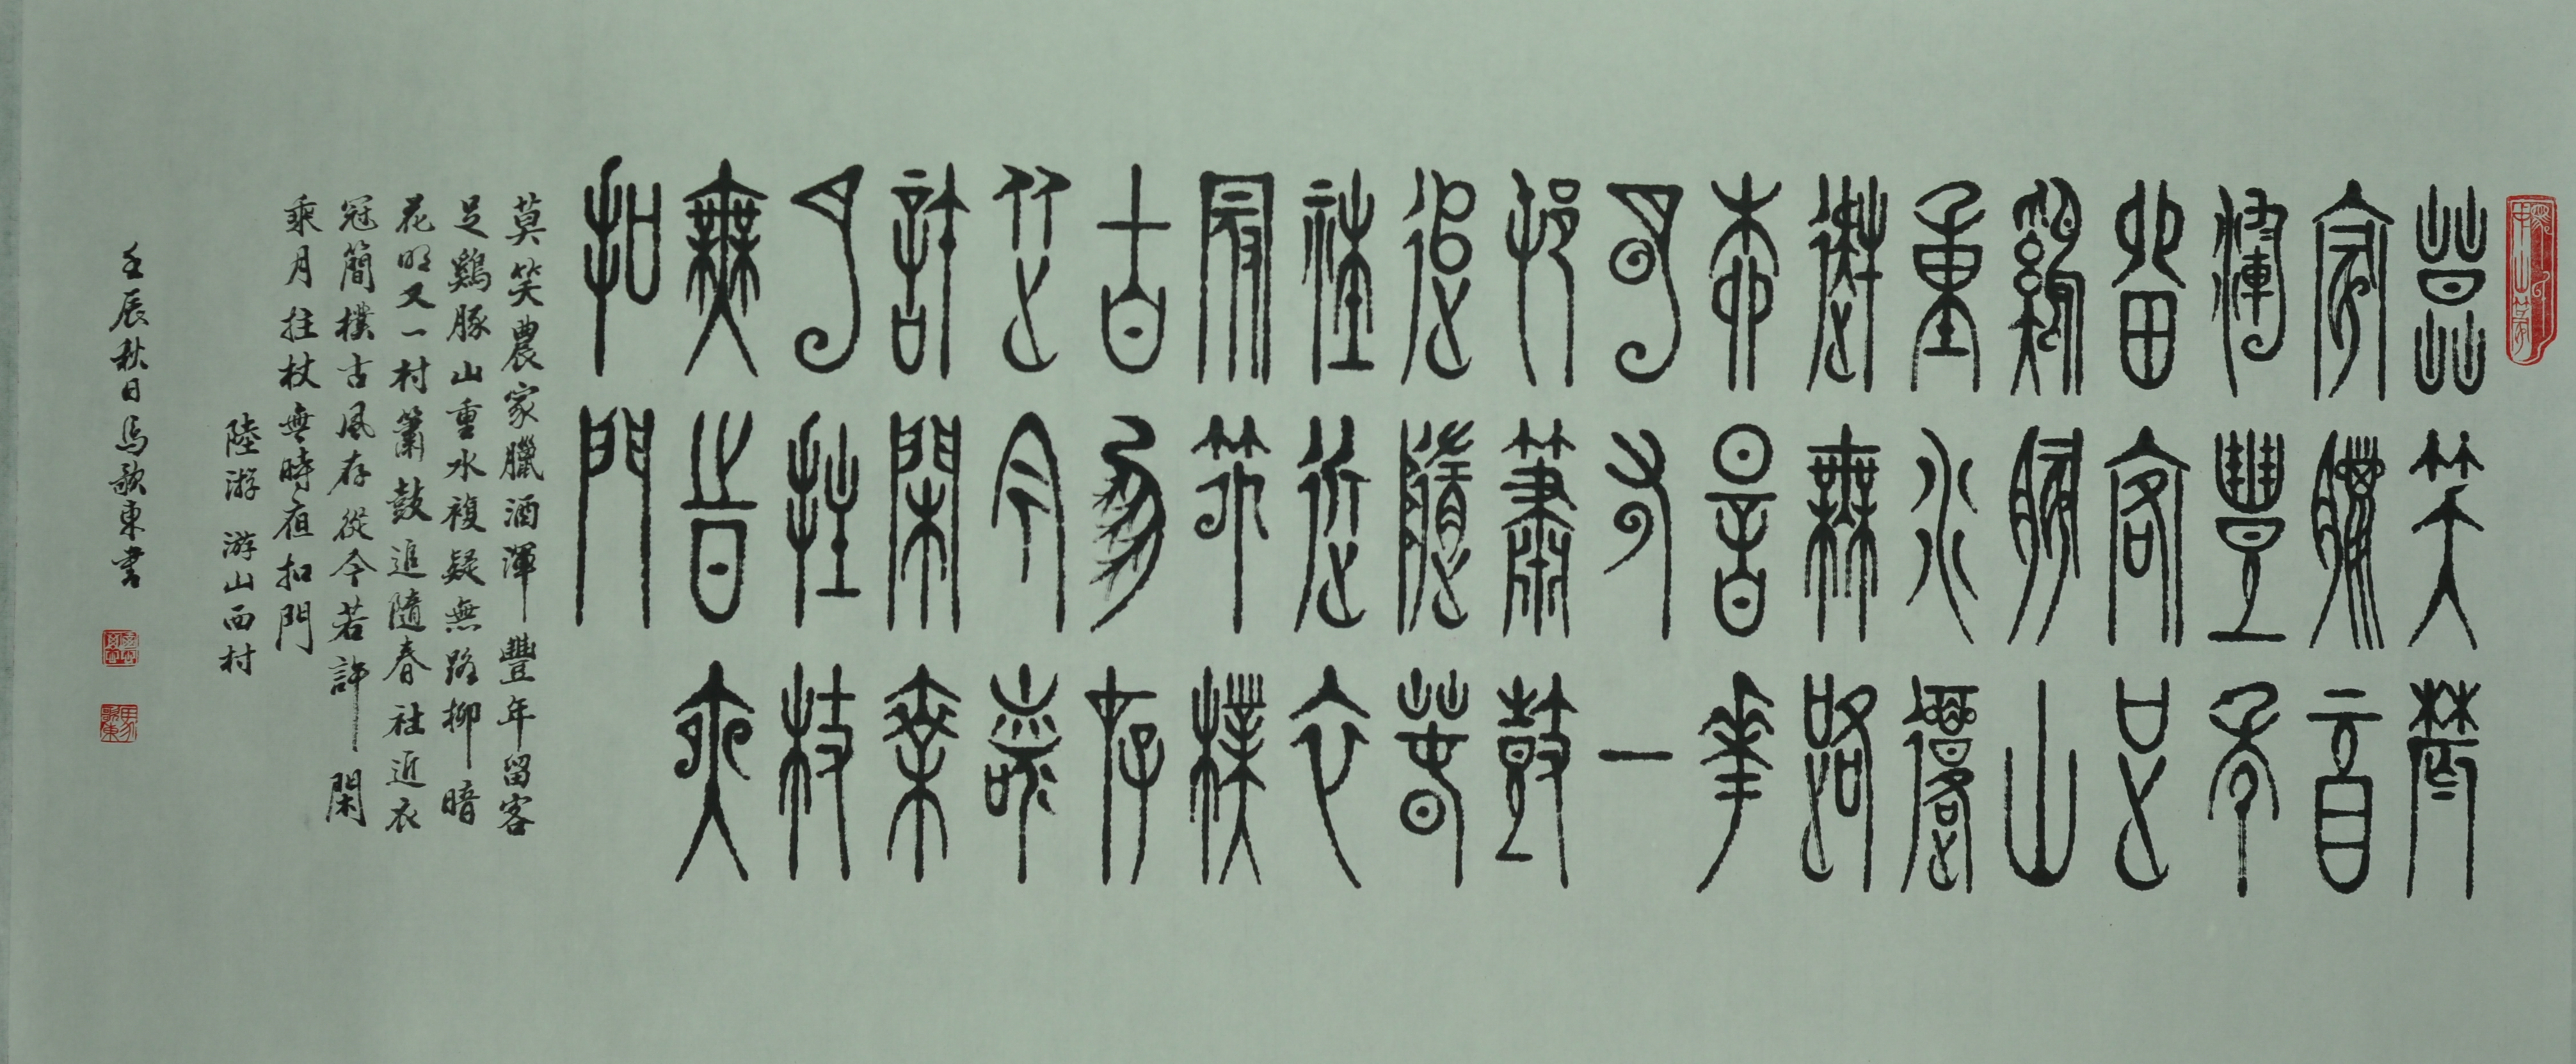 莫笑農
家臘酒
渾豐年
留客足
鷄豚山
重水復
疑無路
柳暗花
明又一
村簫鼓
追隨春
社近衣
冠簡樸
古風存
從今若
許閑乘
月拄杖
無時夜
扣門
莫笑農家臘酒渾豐年留客
足鷄豚山重水複疑無路柳暗
花明又一村簫鼓追隨春社近衣
冠簡樸古風存從今若許閑
乘月拄杖無時夜扣門
陸游 游山西村
壬辰秋日馬歌東書
馬歌東